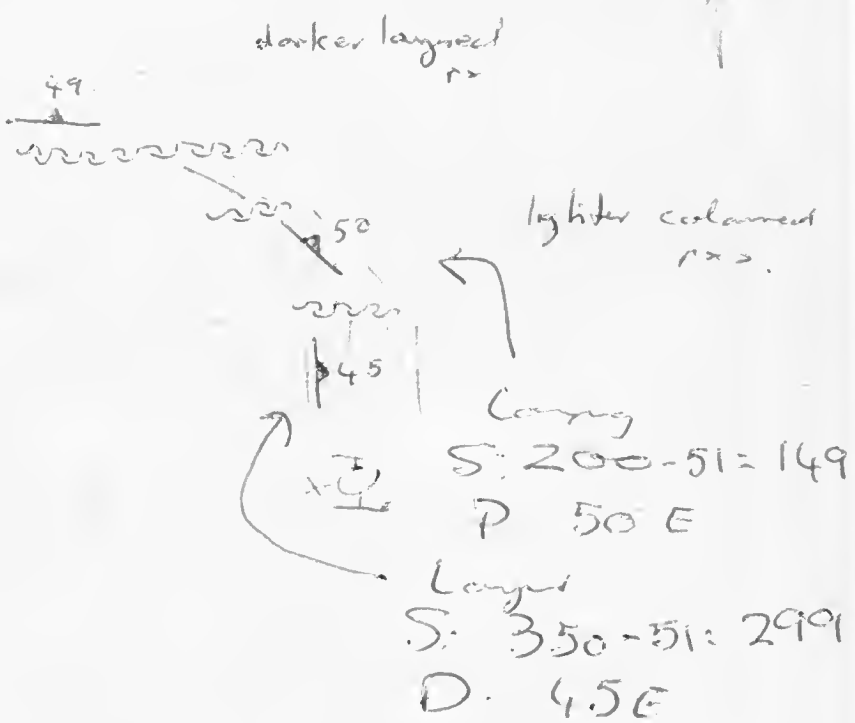 darker layered
rxs
49
50
lighter coloured
rxs.
45
Layering
S: 200-51= 149
D 50 E
Layer
S: 350-51= 299
D. 45E